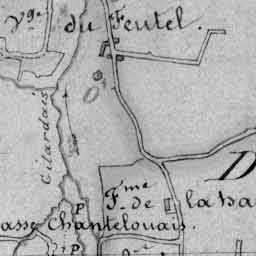 Vge
du Feutel.
Gilardais
D
Fme
F. de la ba
asse Chantelouais.
P
P